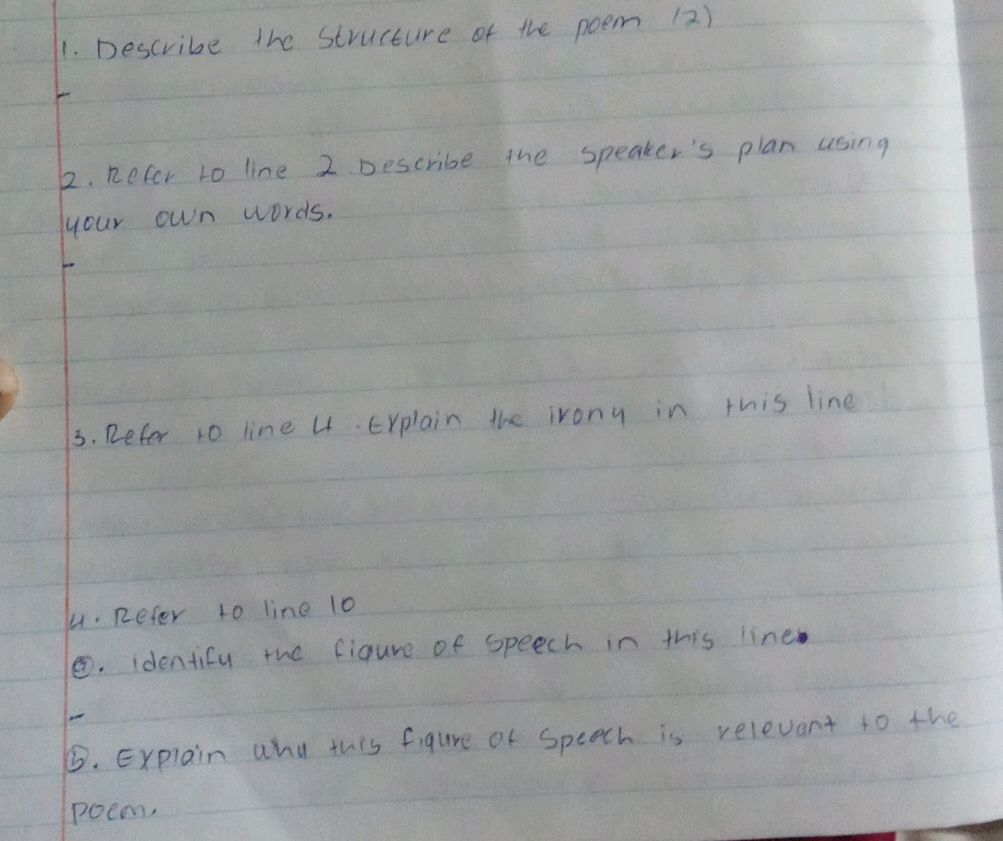 1. Describe the structure of the poem (2)
-
2. Refer to line 2. Describe the speaker's plan using
your own words.
-
3. Refer to line 4. Explain the irony in this line
4. Refer to line 10
a. identify the figure of speech in this line.
-
b. Explain why this figure of speech is relevant to the
poem.